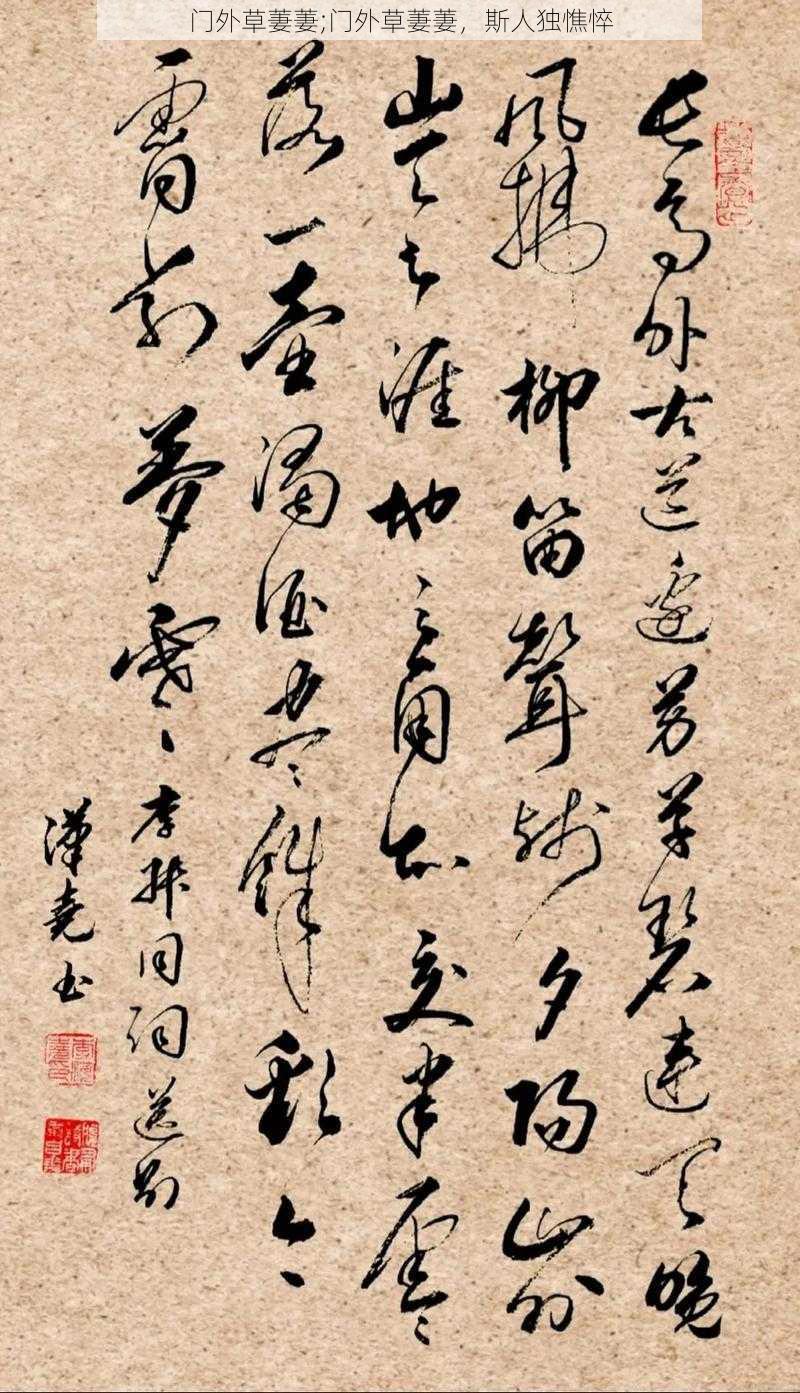 门外草萋萋;门外草萋萋，斯人独憔悴
长亭外古道边芳草碧连天晚
风拂柳笛聲残夕阳山外
山天之涯地之角知交半零
落一壺濁酒尽餘歡今
宵别夢寒
李叔同词送别
漢堯书